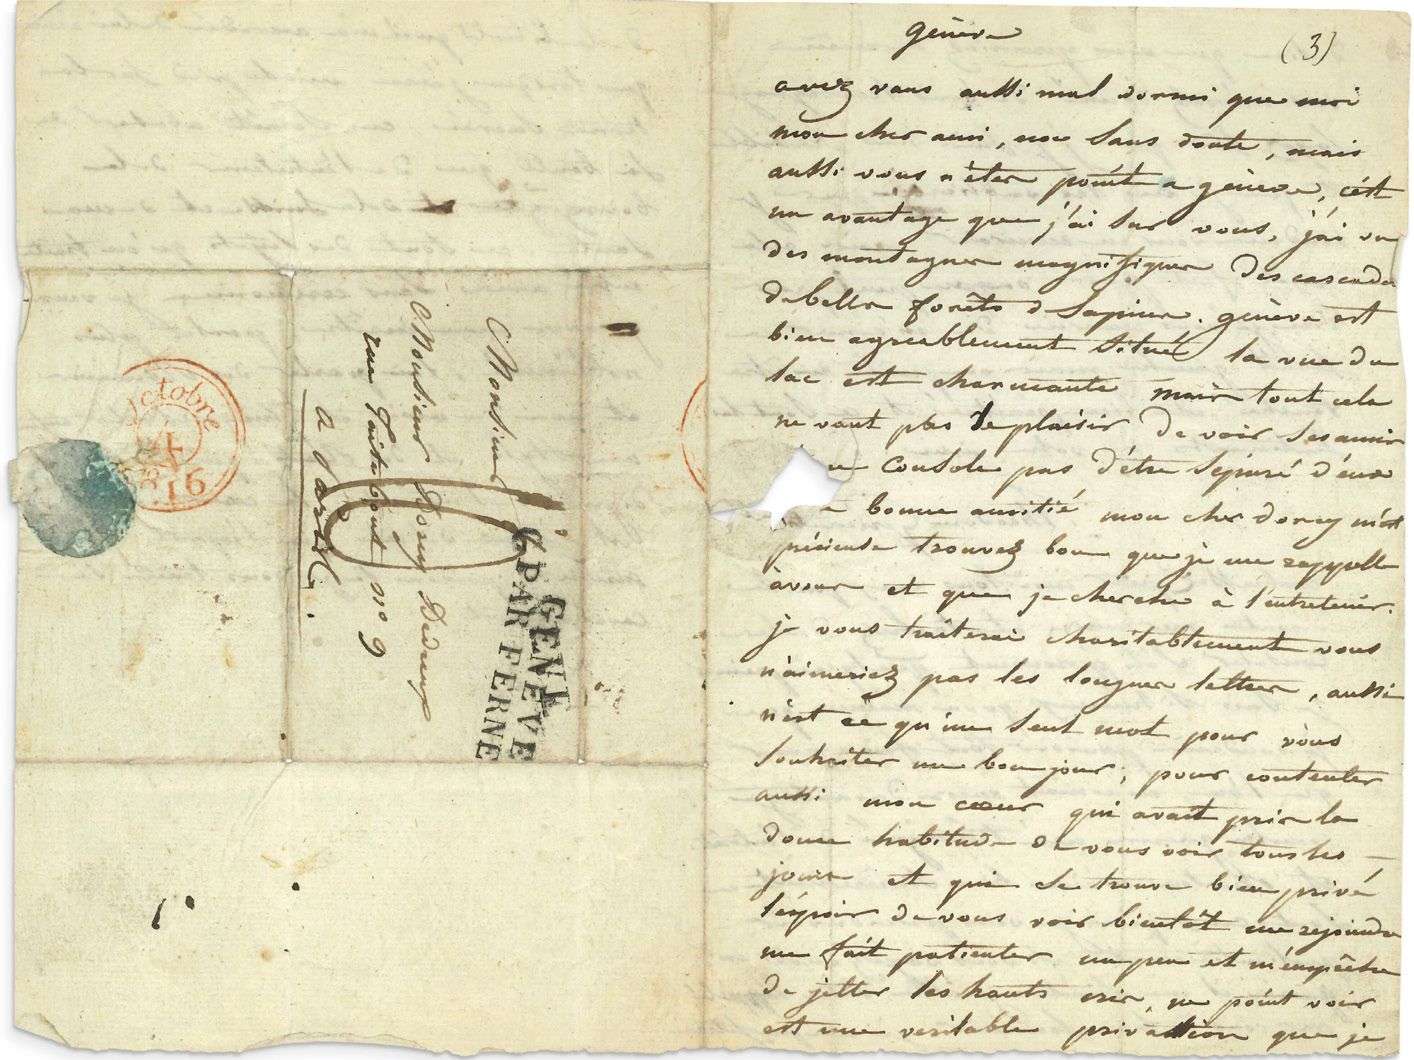 Octobre
4
1816
Monsieur
Monsieur Dorcy Dedreux
rue Taitbout n° 9
a Paris.
6
GENÈVE
PAR FERNE
genève
(3)
avez vous aussi mal dormi que moi
mon cher ami, non sans doute, mais
aussi vous n'éter point a genève, c'ést
un avantage que j'ai sur vous, j'ai vu
des montagner magnifiquer des cascade
de belle forêts d sapins. genève est
bien agreablement situé la vue du
lac est charmante mair tout cela
ne vaut pas le plaisir de voir ses amir
console pas d'être séparé d'eux
bonne amitié, mon cher dorcy m'est
précieuse trouvez bon que je me rappelle
àvour et que je cherche à l'entretenir.
je vous traiterai charitablement vous
n'aimeriez pas les longuer letter, aussi
n'est ce qu'un seul mot pour vous
souhaiter un bonjour, pour contenter
aussi mon cœur qui avait prir la
douce habitude de vous voir tous les
jours et qui se trouve bien privé
l'éspoir de vous voir bientôt me rejoindre
me fait patienter un peu et m'empêche
de jetter les hauts crir, ne point voir
est une veritable privation que je